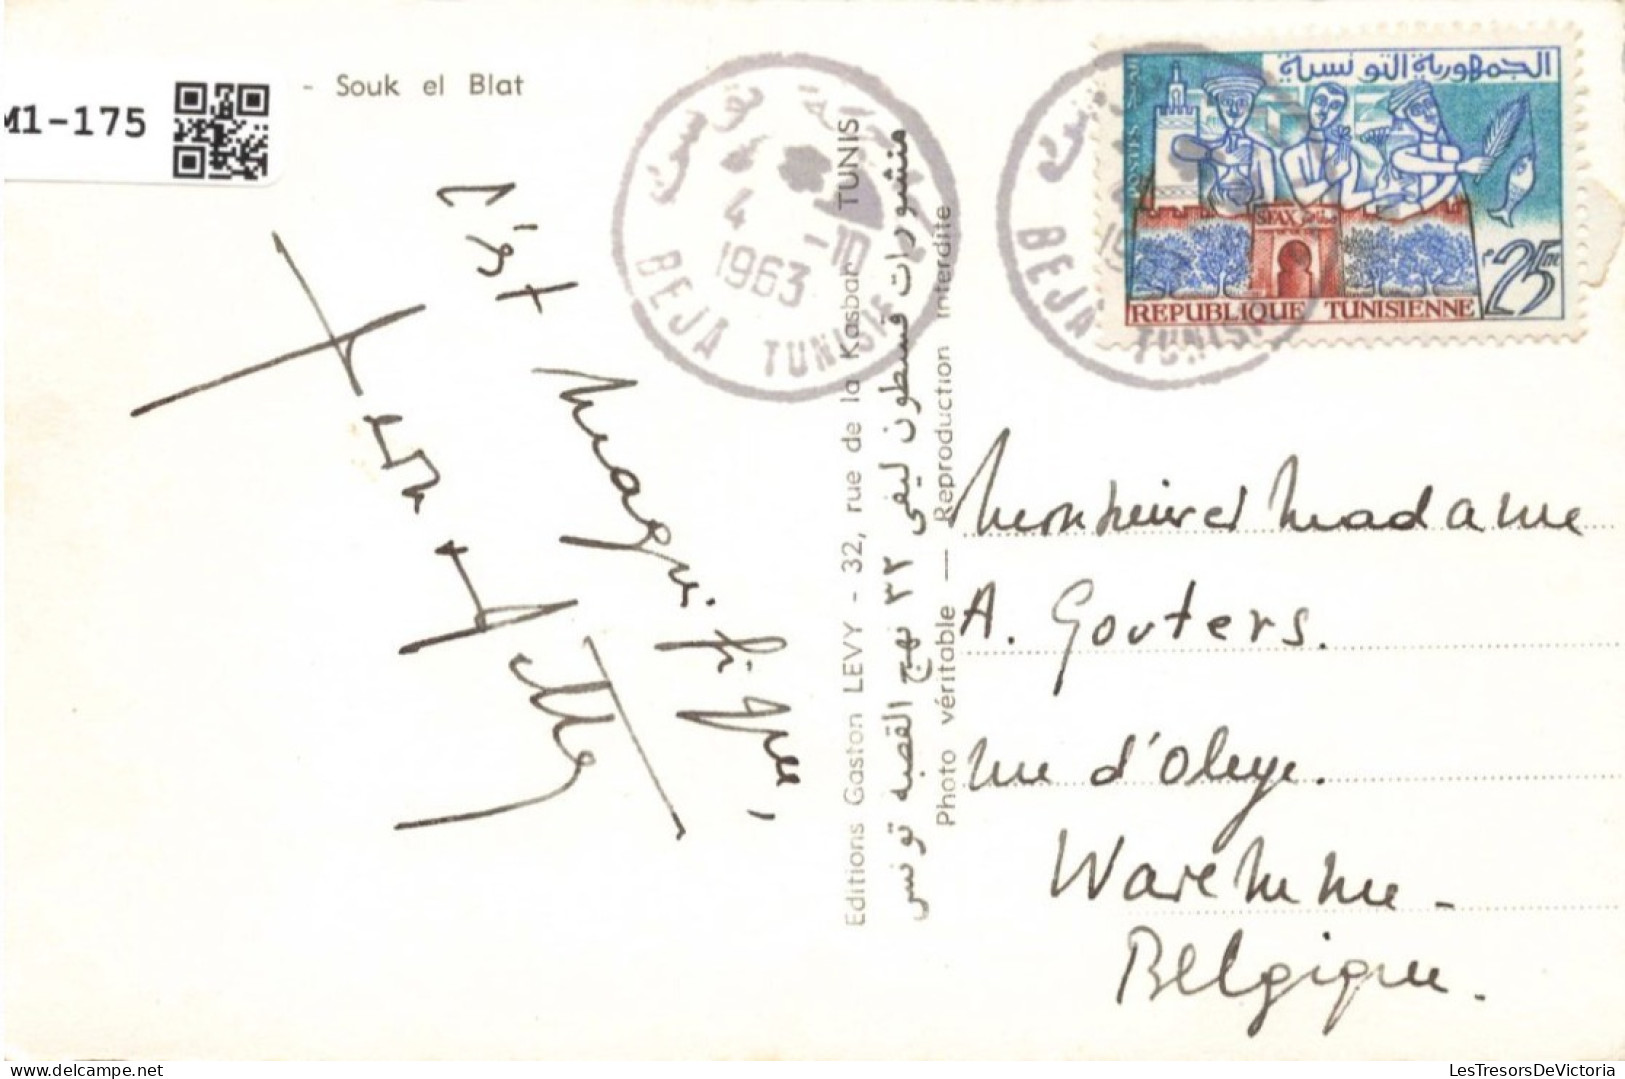 M1-175
- Souk el Blat
C'est
Magnifique,
Editions Gaston LEVY - 32, rue de la Kasbah TUNIS
منشورات قسطون ليفي ٣٢ نهج القصبه تونس
Photo véritable — Reproduction interdite
4
-10
1963
BEJA TUNISIE
الجمهورية التونسية
SFAX
REPUBLIQUE TUNISIENNE
25m
BEJA TUNISIE
Monsieur et Madame
A. Gouters.
rue d'Oleye.
Waremme -
Belgique.
LesTresorsDeVictoria